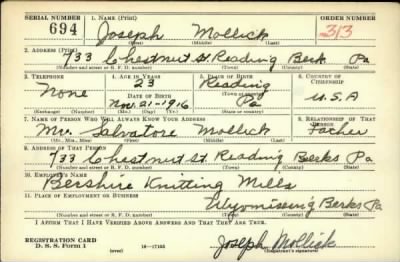 SERIAL NUMBER 1. NAME (Print) ORDER NUMBER
694 Joseph Mollick 313
(First) (Middle) (Last)
2. ADDRESS (Print)
733 Chestnut St. Reading Berk Pa
(Number and street or R. F. D. number) (Town) (County) (State)
3. TELEPHONE 4. AGE IN YEARS 5. PLACE OF BIRTH 6. COUNTRY OF CITIZENSHIP
None 23 Reading
DATE OF BIRTH (Town or county)
Nov. 21-1916 Pa U.S.A
(Exchange) (Number) (Mo.) (Day) (Yr.) (State or country)
7. NAME OF PERSON WHO WILL ALWAYS KNOW YOUR ADDRESS 8. RELATIONSHIP OF THAT PERSON
Mr. Salvatore Mollick Father
(Mr., Mrs., Miss) (First) (Middle) (Last)
9. ADDRESS OF THAT PERSON
733 Chestnut St. Reading Berks Pa
(Number and street or R. F. D. number) (Town) (County) (State)
10. EMPLOYER'S NAME
Bershire Knitting Mills
11. PLACE OF EMPLOYMENT OR BUSINESS
Wyomissing Berks Pa
(Number and street or R. F. D. number) (Town) (County) (State)
I AFFIRM THAT I HAVE VERIFIED ABOVE ANSWERS AND THAT THEY ARE TRUE.
REGISTRATION CARD
D. S. S. Form 1 (over) 16—17105 Joseph Mollick
(Registrant's signature)